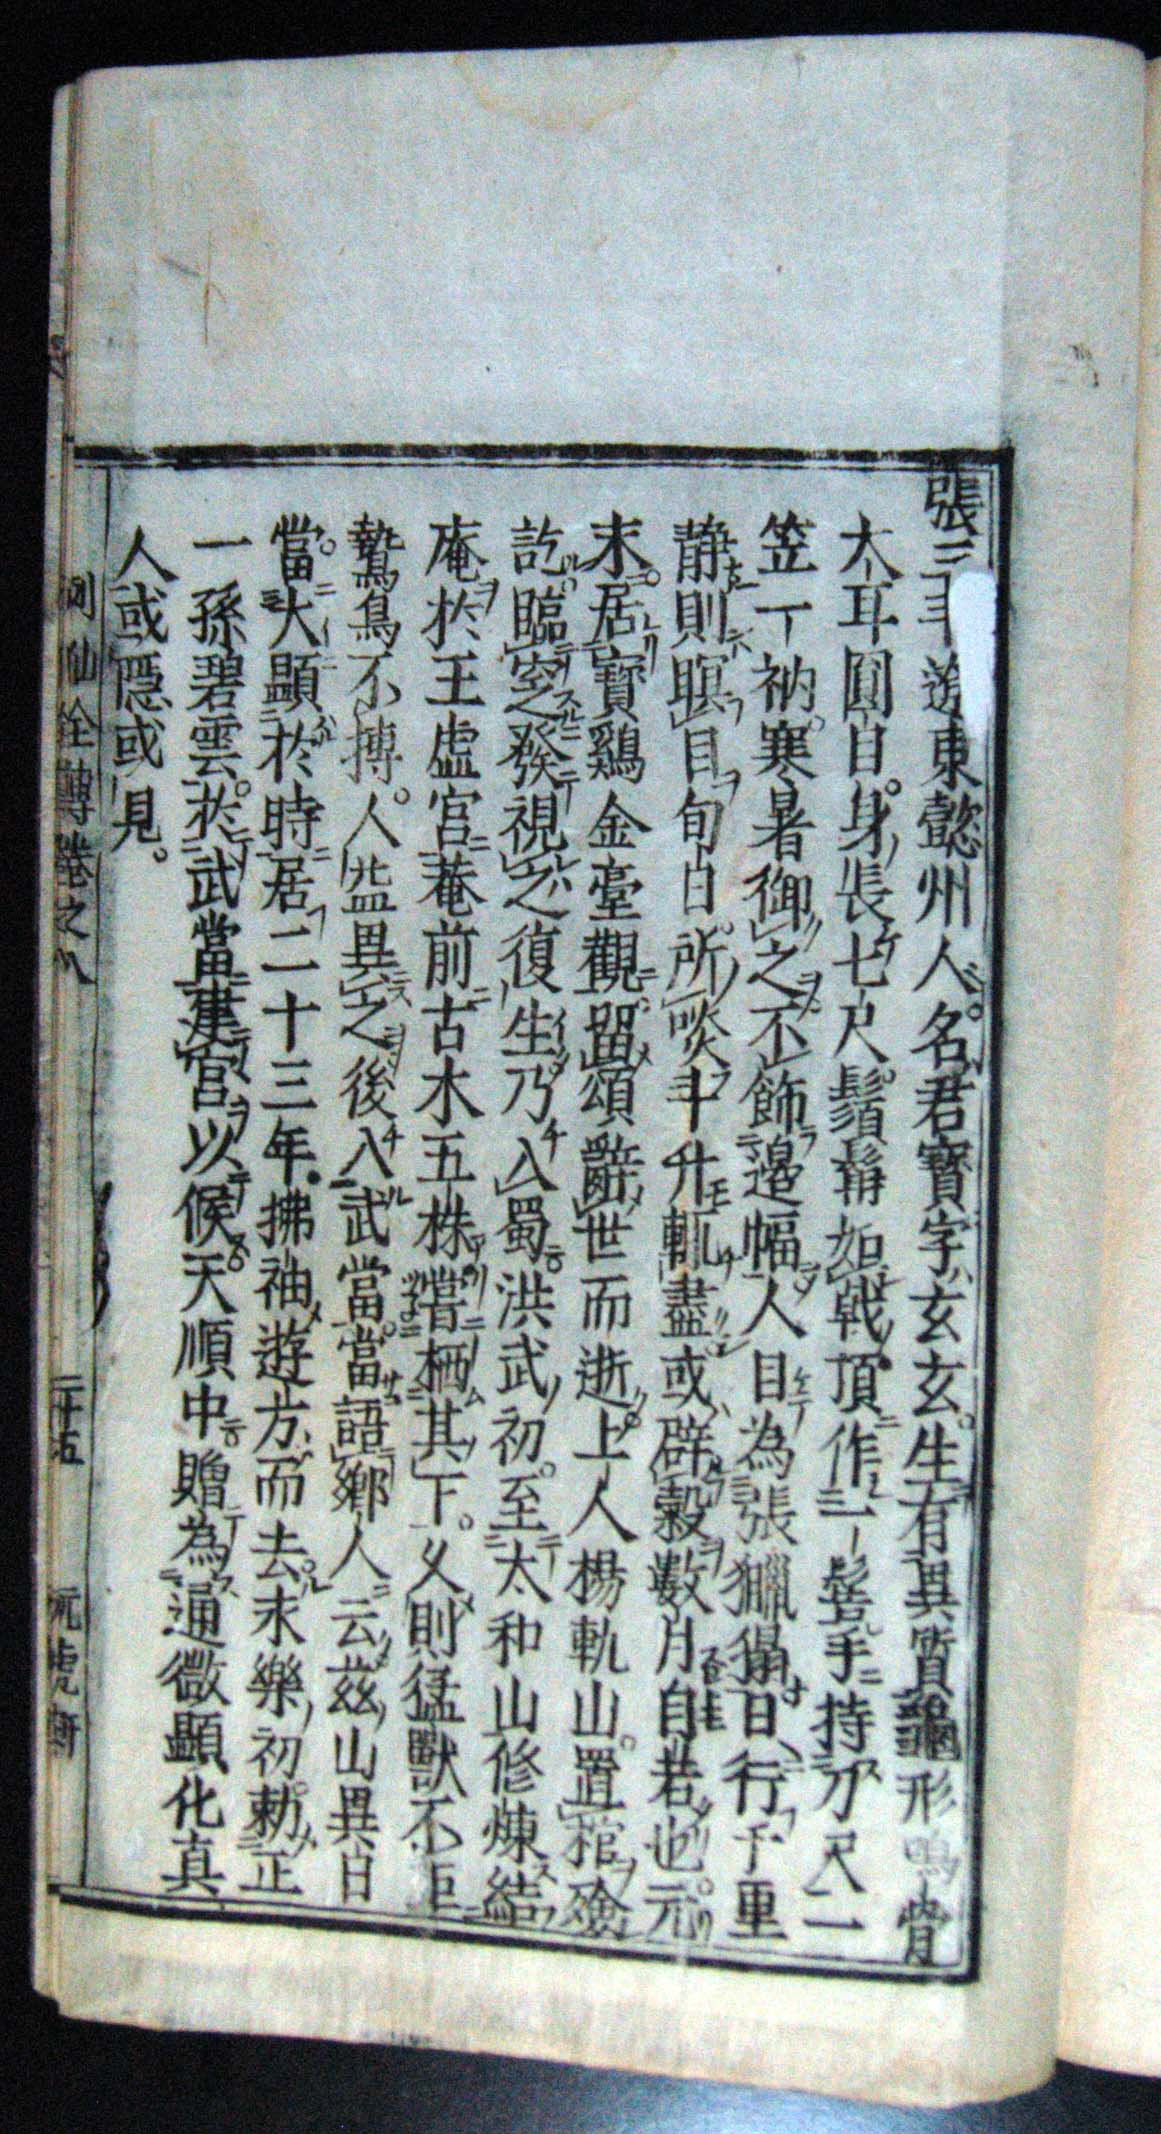 張三丰遼東懿州人。名君寶字玄玄。生有異質龜形鶴骨
大耳圓目。身長七尺。鬚髯如戟。頂作一髻手持刀尺一
笠一衲。寒暑御之不飾邊幅人目為張獵獵日行千里
静則瞑目旬日。所啖斗升輒盡或辟穀數月自若也。元
末。居寶鷄金臺觀。留頌辭世而逝。土人楊軌山。置棺殮
訖臨窆發視之復生。乃入蜀洪武初。至太和山修煉結
庵於玉虛宮菴前古木五株嘗栖其下。乆則猛獸不距
鷙鳥不摶。人益異之後入武當。當語郷人云茲山異日
當。大顯於時居二十三年。拂袖遊方而去。永樂初。勅正
一孫碧雲。於武當建宮以候天順中贈為通微顯化真
人或隠或見。
列仙全傳卷之八 二十五 玩虎軒